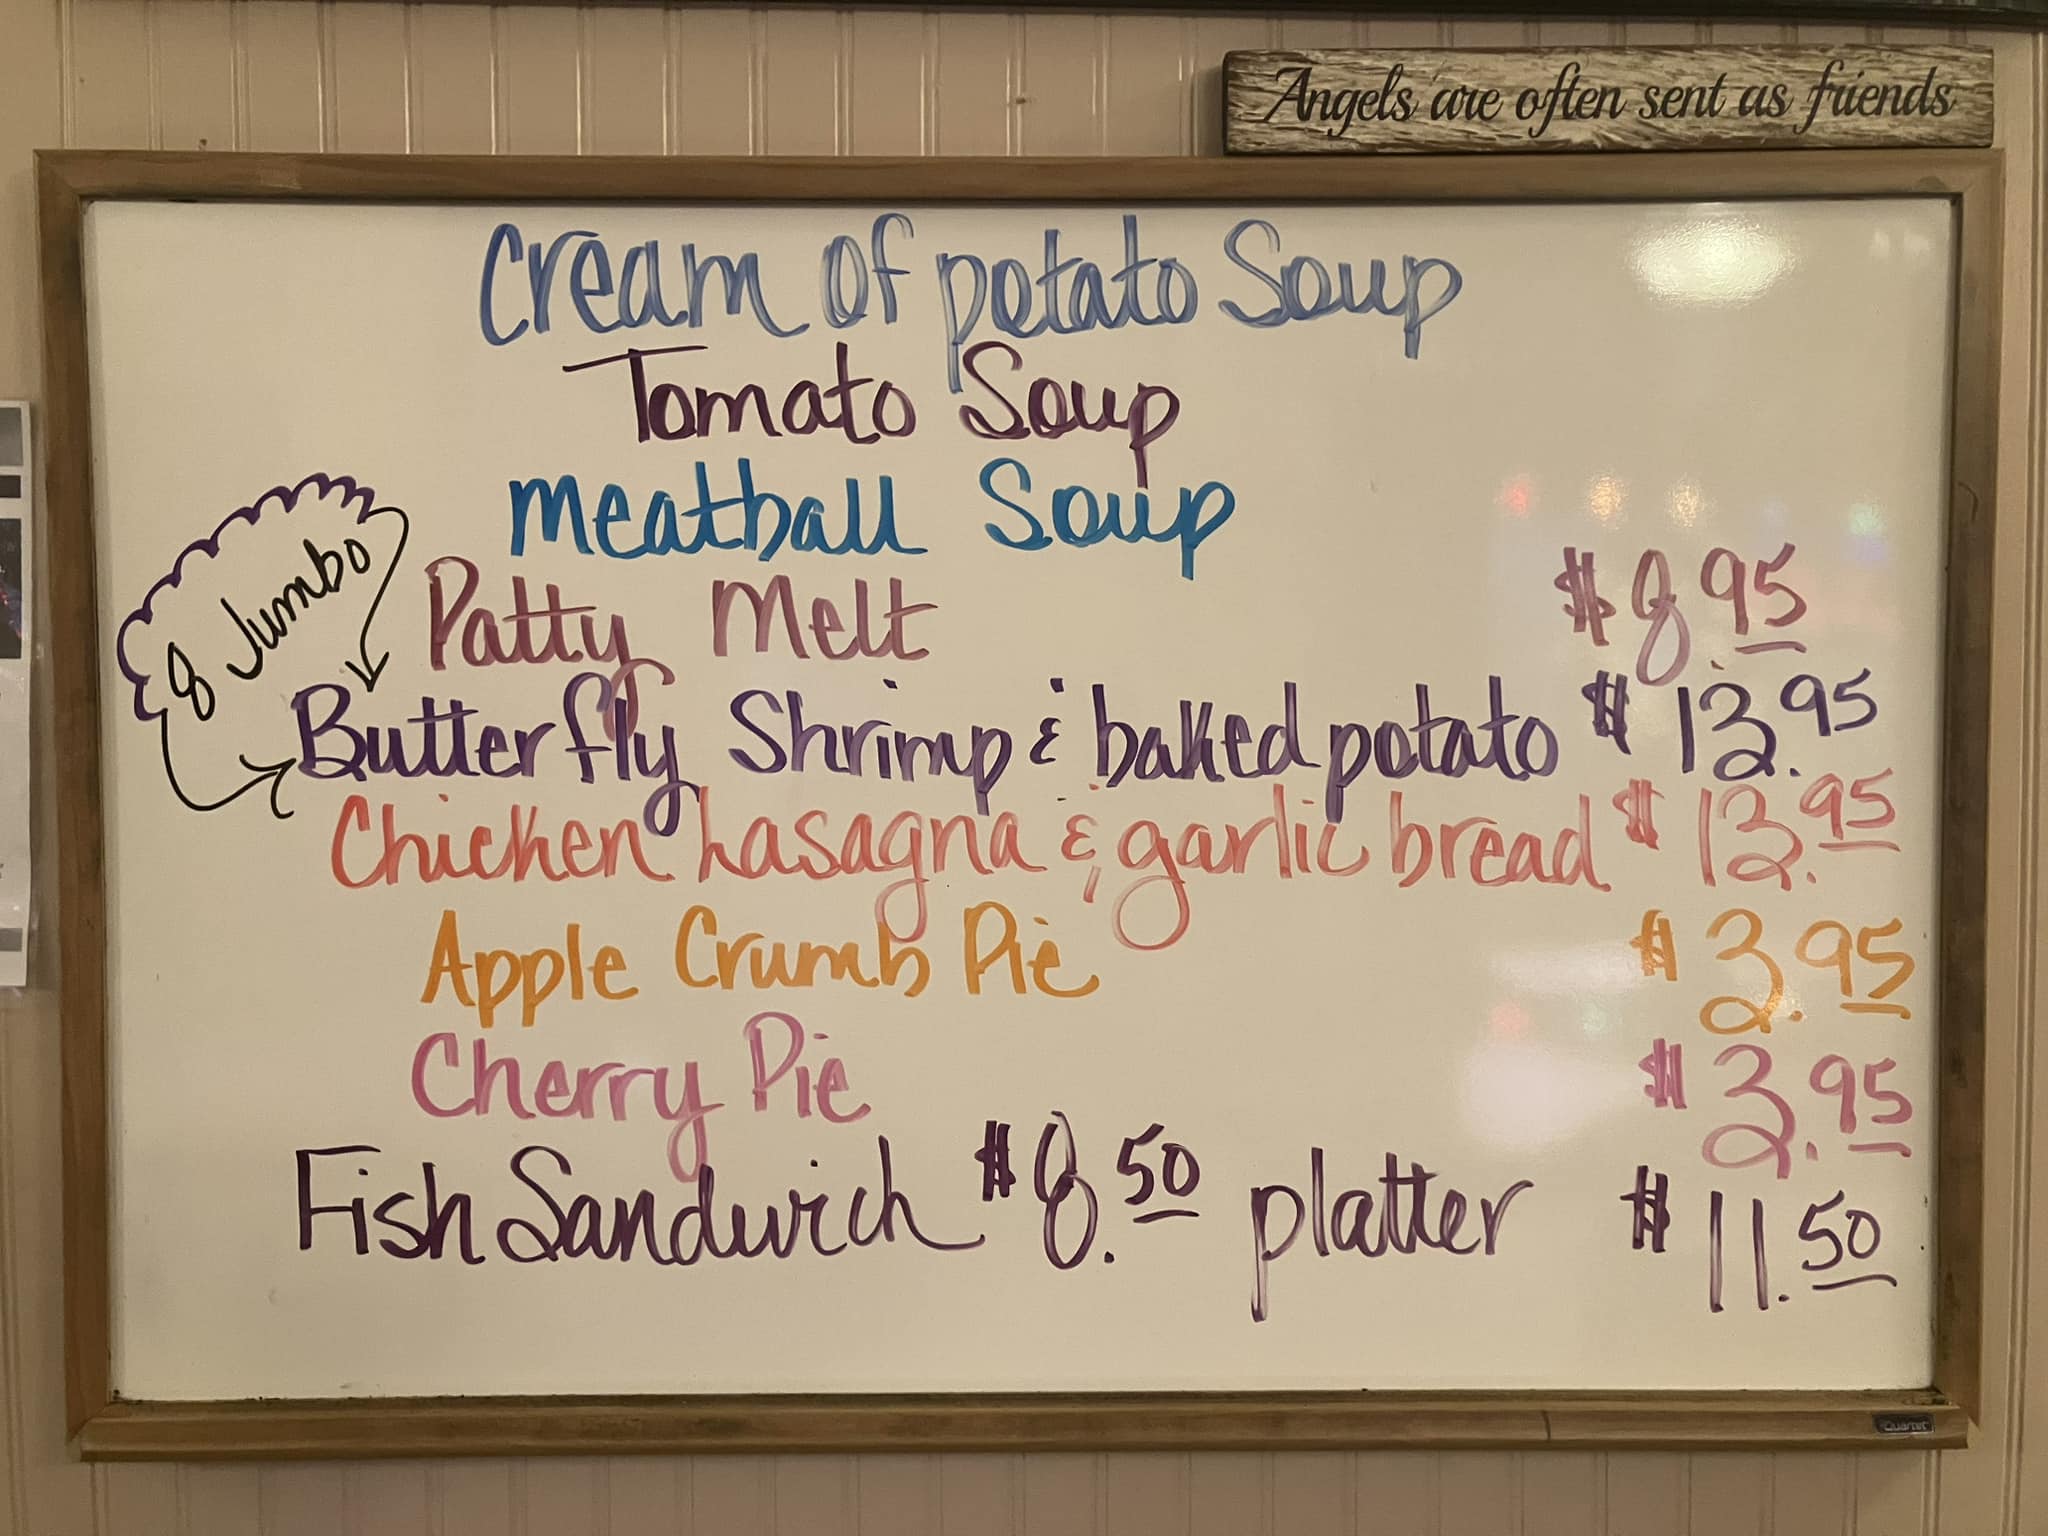 Angels are often sent as friends
Cream of potato Soup
Tomato Soup
Meatball Soup
8 Jumbo
Patty Melt $8.95
Butterfly Shrimp & baked potato $13.95
Chicken Lasagna & garlic bread $13.95
Apple Crumb Pie $3.95
Cherry Pie $3.95
Fish Sandwich $8.50 platter $11.50
Quartet